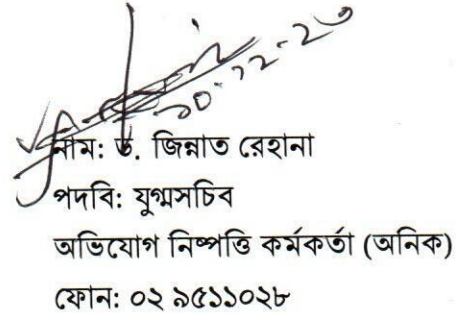 নাম: ড. জিন্নাত রেহানা
পদবি: যুগ্মসচিব
অভিযোগ নিষ্পত্তি কর্মকর্তা (অনিক)
ফোন: ০২ ৯৫১১০২৮